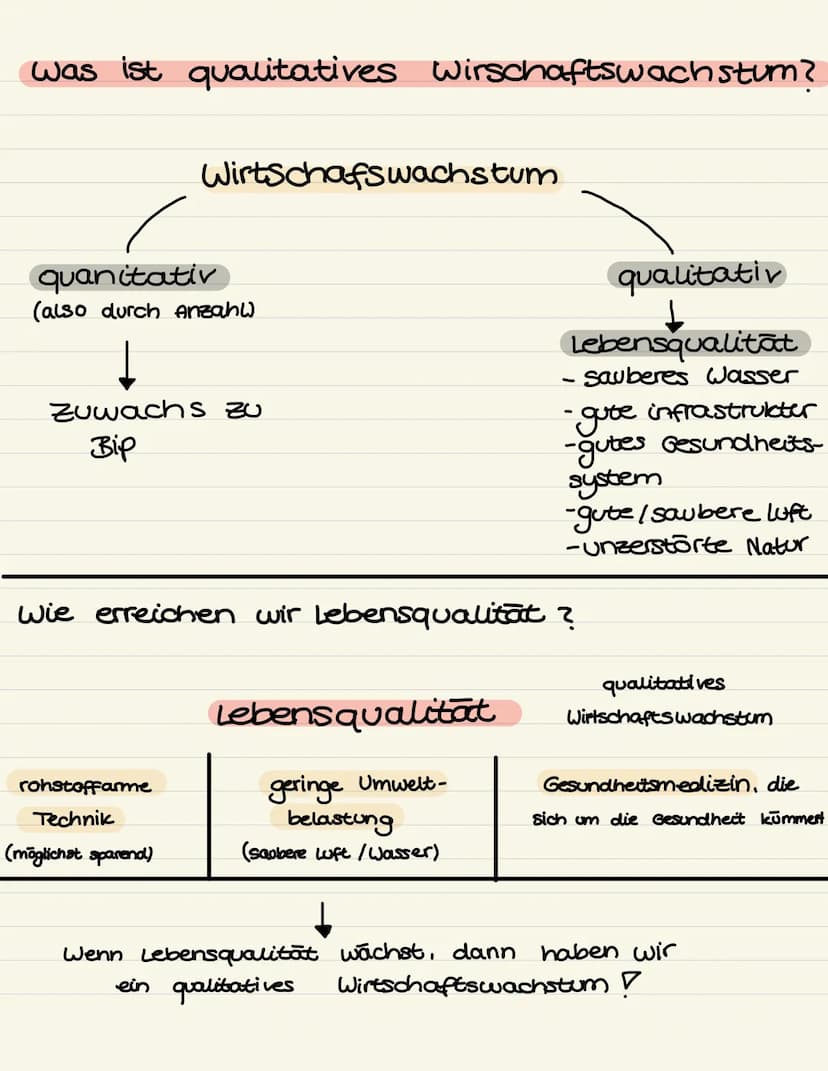 Was ist qualitatives Wirschaftswachstum?
Wirtschafswachstum
quanitativ
(also durch Anzahl)
Zuwachs zu
Bip
qualitativ
Lebensqualität
- sauberes Wasser
- gute infrastrukter
-gutes Gesundheits-
system
-gute/saubere luft
-unzerstörte Natur
Wie erreichen wir Lebensqualität?
qualitatives
Wirtschaftswachstum
Lebensqualität
rohstoffarme
Technik
(möglichst sparend)
geringe Umwelt-
belastung
(saubere Luft /Wasser)
Gesundheitsmedizin, die
sich um die Gesundheit kümmert
Wenn Lebensqualität wächst, dann haben wir
ein qualitatives Wirtschaftswachstum!